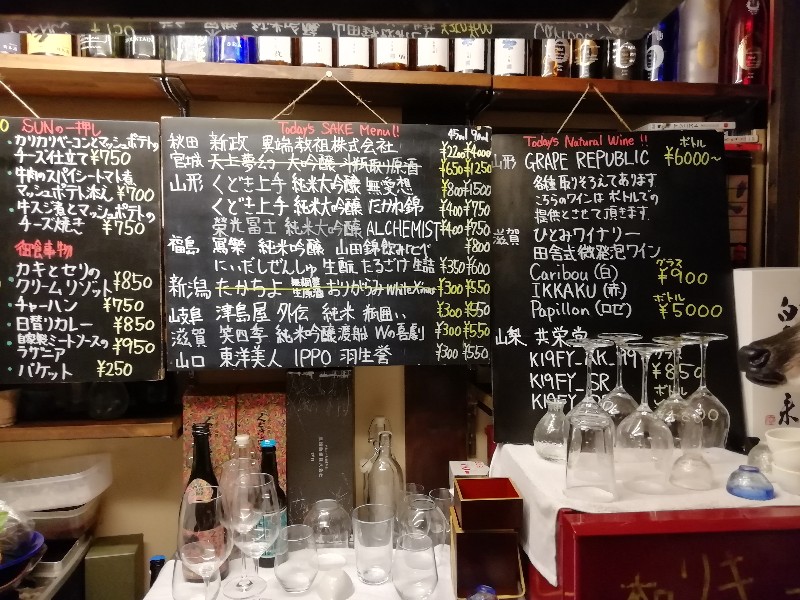 SUNの一押し
・カリカリベーコンとマッシュポテトの
チーズ仕立て ¥750
・牛肉のスパイシートマト煮
マッシュポテト添え ¥700
・牛スジ煮とマッシュポテトの
チーズ焼き ¥750
御食事物
・カキとセリの
クリームリゾット ¥850
・チャーハン ¥750
・日替りカレー ¥850
・自家製ミートソースの
ラザニア ¥950
・バケット ¥250
Today's SAKE Menu!!
45ml 90ml
秋田 新政 異端教祖株式会社 ¥2200 ¥4000
宮城 天上夢幻 大吟醸 斗瓶取り原酒 ¥650 ¥1250
山形 くどき上手 純米大吟醸 無愛想 ¥800 ¥1500
くどき上手 純米大吟醸 たかね錦 ¥400 ¥750
栄光冨士 純米大吟醸 ALCHEMIST ¥400 ¥750
福島 純米吟醸 山田錦 ¥800
にいだしぜんしゅ 生酛 ¥350 ¥600
新潟 たかちよ 無調整生原酒 おりがらみ White Xmas ¥300 ¥550
岐阜 津島屋 外伝 純米 ¥300 ¥550
滋賀 笑四季 純米吟醸 渡船 Wo喜劇 ¥300 ¥550
山口 東洋美人 IPPO 羽生誉 ¥300 ¥550
Today's Natural Wine!!
山形 GRAPE REPUBLIC ボトル ¥6000〜
各種取りそろえてあります
こちらのワインはボトルでの
提供とさせて頂きます.
滋賀 ひとみワイナリー
田舎式微発泡ワイン
Caribou (白) グラス ¥900
IKKAKU (赤) ボトル
Papillon (ロゼ) ¥5000
山梨 共栄堂
K19FY_AK グラス
K19FY_SR ¥850
K19FY